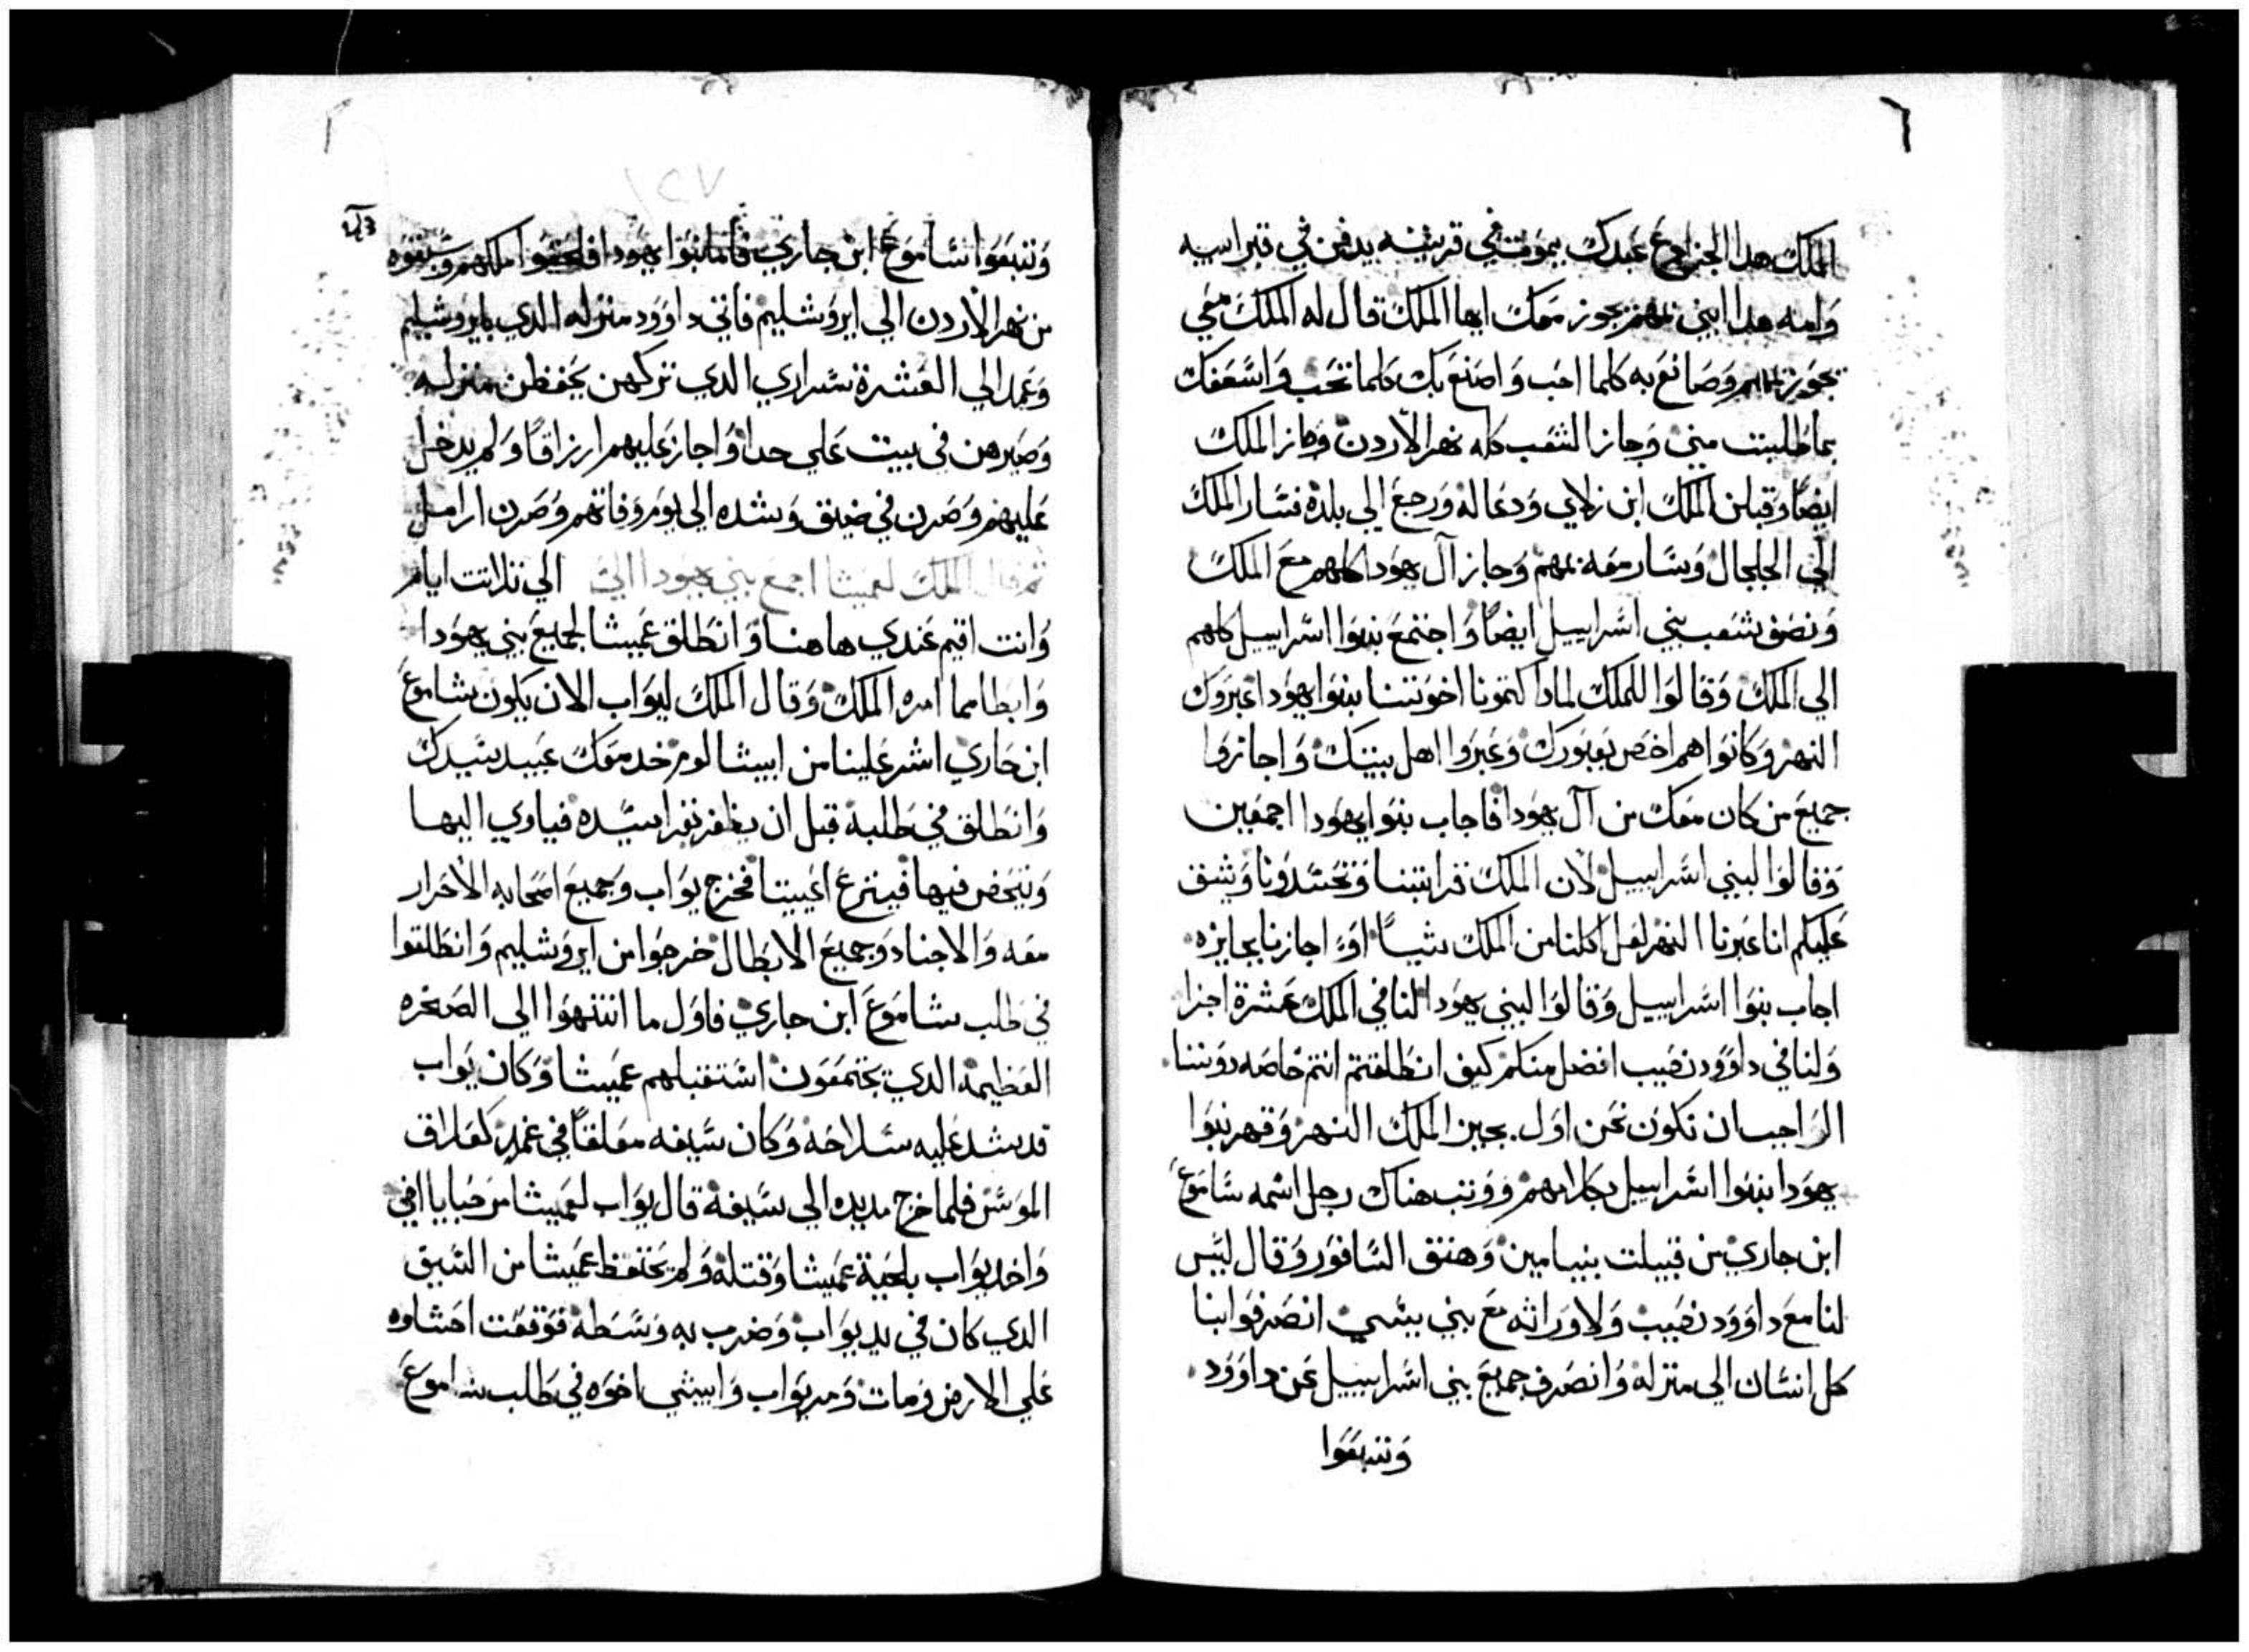 ٦
الملك هدا الجزا يرجع عبدك يموت في قريته يدفن في قبر ابيه
وامه هدا ابني بمهم يجوز معك ايها الملك قال له الملك معي
يجوز بمهم وصانع به كلما احب واصنع بك كلما تحب واسعفك
بما طلبت مني وجاز الشعب كله نهر الاردن وجاز الملك
ايضا وقبل الملك ابن زلاي ودعا له ورجع الي بلده فسار الملك
الي الجلجال وسار معه بمهم وجاز آل يهودا كلهم مع الملك
ونصف شعب بني اسراييل ايضا واجتمع بنوا اسراييل كلهم
الي الملك وقالوا للملك لمادا كتمونا اخوتنا بنوا يهودا عبروك
النهر وكانوا هم اخص بعبورك وعبروا اهل بيتك واجازوا
جميع من كان معك من آل يهودا فاجاب بنوا يهودا اجمعين
وقالوا لبني اسراييل لان الملك قرابتنا وتحسدونا وشق
عليكم انا عبرنا النهر لعل اكلنا من الملك شيا او اجازنا بجايزه
اجاب بنوا اسراييل وقالوا لبني يهودا لنا في الملك عشرة اجزا
ولنا في داوود نصيب افضل منكم كيف انطلقتم انتم خاصه دوننا
الواجب ان نكون نحن اول بجيز الملك النهر وقهر بنوا
يهودا بنوا اسراييل بكلامهم ووتب هناك رجل اسمه ساموع
ابن جاري من قبيلت بنيامين وهتف السافور وقال ليس
لنا مع داوود نصيب ولا وراثه مع بني يسي انصرفوا بنا
كل انسان الي منزله وانصرف جميع بني اسراييل عن داوود
وتبعوا
وتبعوا ساموع ابن جاري فاما بنوا يهودا فلحقوا ملكهم وتبعوه
من نهر الاردن الي ايروشليم فاتي داوود منزله الدي بايروشليم
وعمد الي العشرة سراري الدي تركهن يحفظن منزله
وصيرهن في بيت علي حدا واجاز عليهم ارزاقا ولم يدخل
عليهم وصرن في ضيق وشده الي يوم وفاتهم وصرن ارامل
ثم قال الملك لعميشا اجمع بني يهودا الي الي تلاتت ايام
وانت اقيم عندي هاهنا وانطلق عميشا لجميع بني يهودا
وابطا مما امره الملك وقال الملك ليواب الان يكون شاموع
ابن جاري اشر علينا من ابيشالوم خد معك عبيد سيدك
وانطلق في طلبه قبل ان يظفر بقرا سيده فياوي اليها
ويتحض فيها فينزع اعيينا فخرج يواب وجميع اصحابه الاحرار
معه والاجناد وجميع الابطال خرجوا من ايروشليم وانطلقوا
في طلب شاموع ابن جاري فاول ما انتهوا الي الصخره
العظيمه الدي يجتمعون استقبلهم عميشا وكان يواب
قد شد عليه سلاحه وكان سيفه معلقا في غمد
الموس فلما اخرج مد يده الي سيفه قال يواب لعميشا مرحبا يا اخي
واخد يواب بلحية عميشا وقتله ولم يحتفظ عميشا من السيف
الدي كان في يد يواب وضرب به وسطه فوقعت احشاوه
علي الارض ومات ومر يواب وابيشي اخوه في طلب شاموع